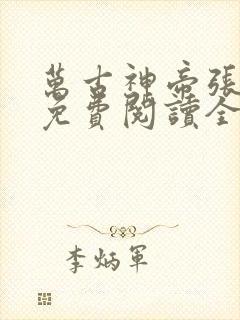 萬古神帝張
免費閱讀全
李炳軍